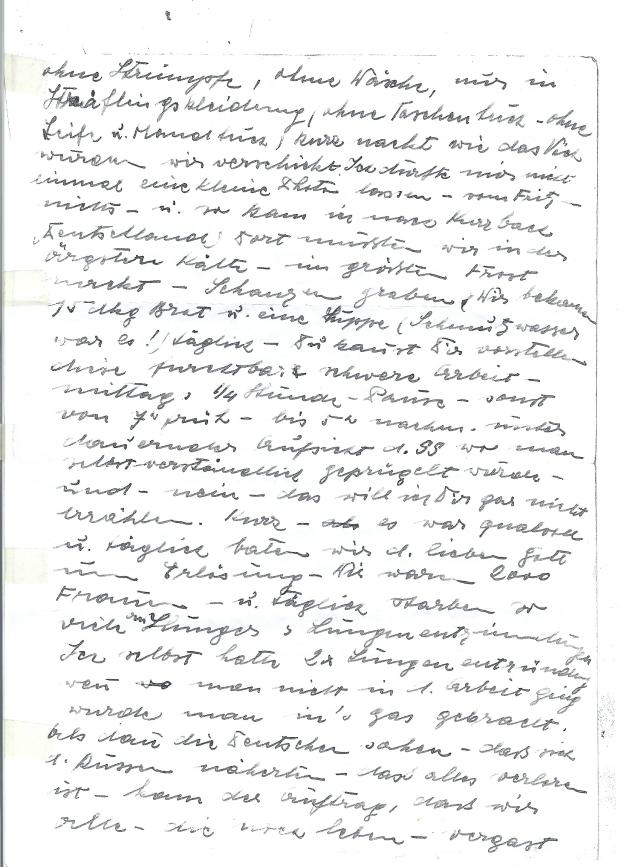 ohne Strümpfe, ohne Wäsche, nur in
Sträflingskleidung, ohne Taschentuch - ohne
Seife u. Handtuch, kurz nackt wie das Vieh
wurden wir verschickt. Ich durfte mir nicht
einmal eine kleine Photo lassen - vom Fritz -
nichts - u. so kam ich nach Kurzback
(Deutschland) Dort mußten wir in der
ärgsten Kälte - im größten Frost
nackt - Schanzen graben, Wir bekamen
15 dkg Brot u. eine Suppe (Schmutzwasser
war es!) täglich - Du kannst Dir vorstellen
diese furchtbare schwere Arbeit -
mittags 1/4 Stunde - Pause - sonst
von 7h früh - bis 5h nachm. unter
dauernder Aufsicht d. SS wo man
selbstverständlich geprügelt wurde -
und - nein - das will ich Dir gar nicht
erzählen. Kurz - es war qualvoll
u. täglich baten wir d. lieben Gott
um Erlösung - Wir waren 2000
Frauen - u. täglich starben so
viele an Hunger, Lungenentzündungen
Ich selbst hatte 2x Lungenentzündung
wen man nicht in d. Arbeit ging
wurde man in's Gas gebracht.
Als dan die Deutschen sahen - daß sich
d. Russen näherten - das alles verloren
ist - kam der Auftrag, daß wir
alle - die noch leben - vergast